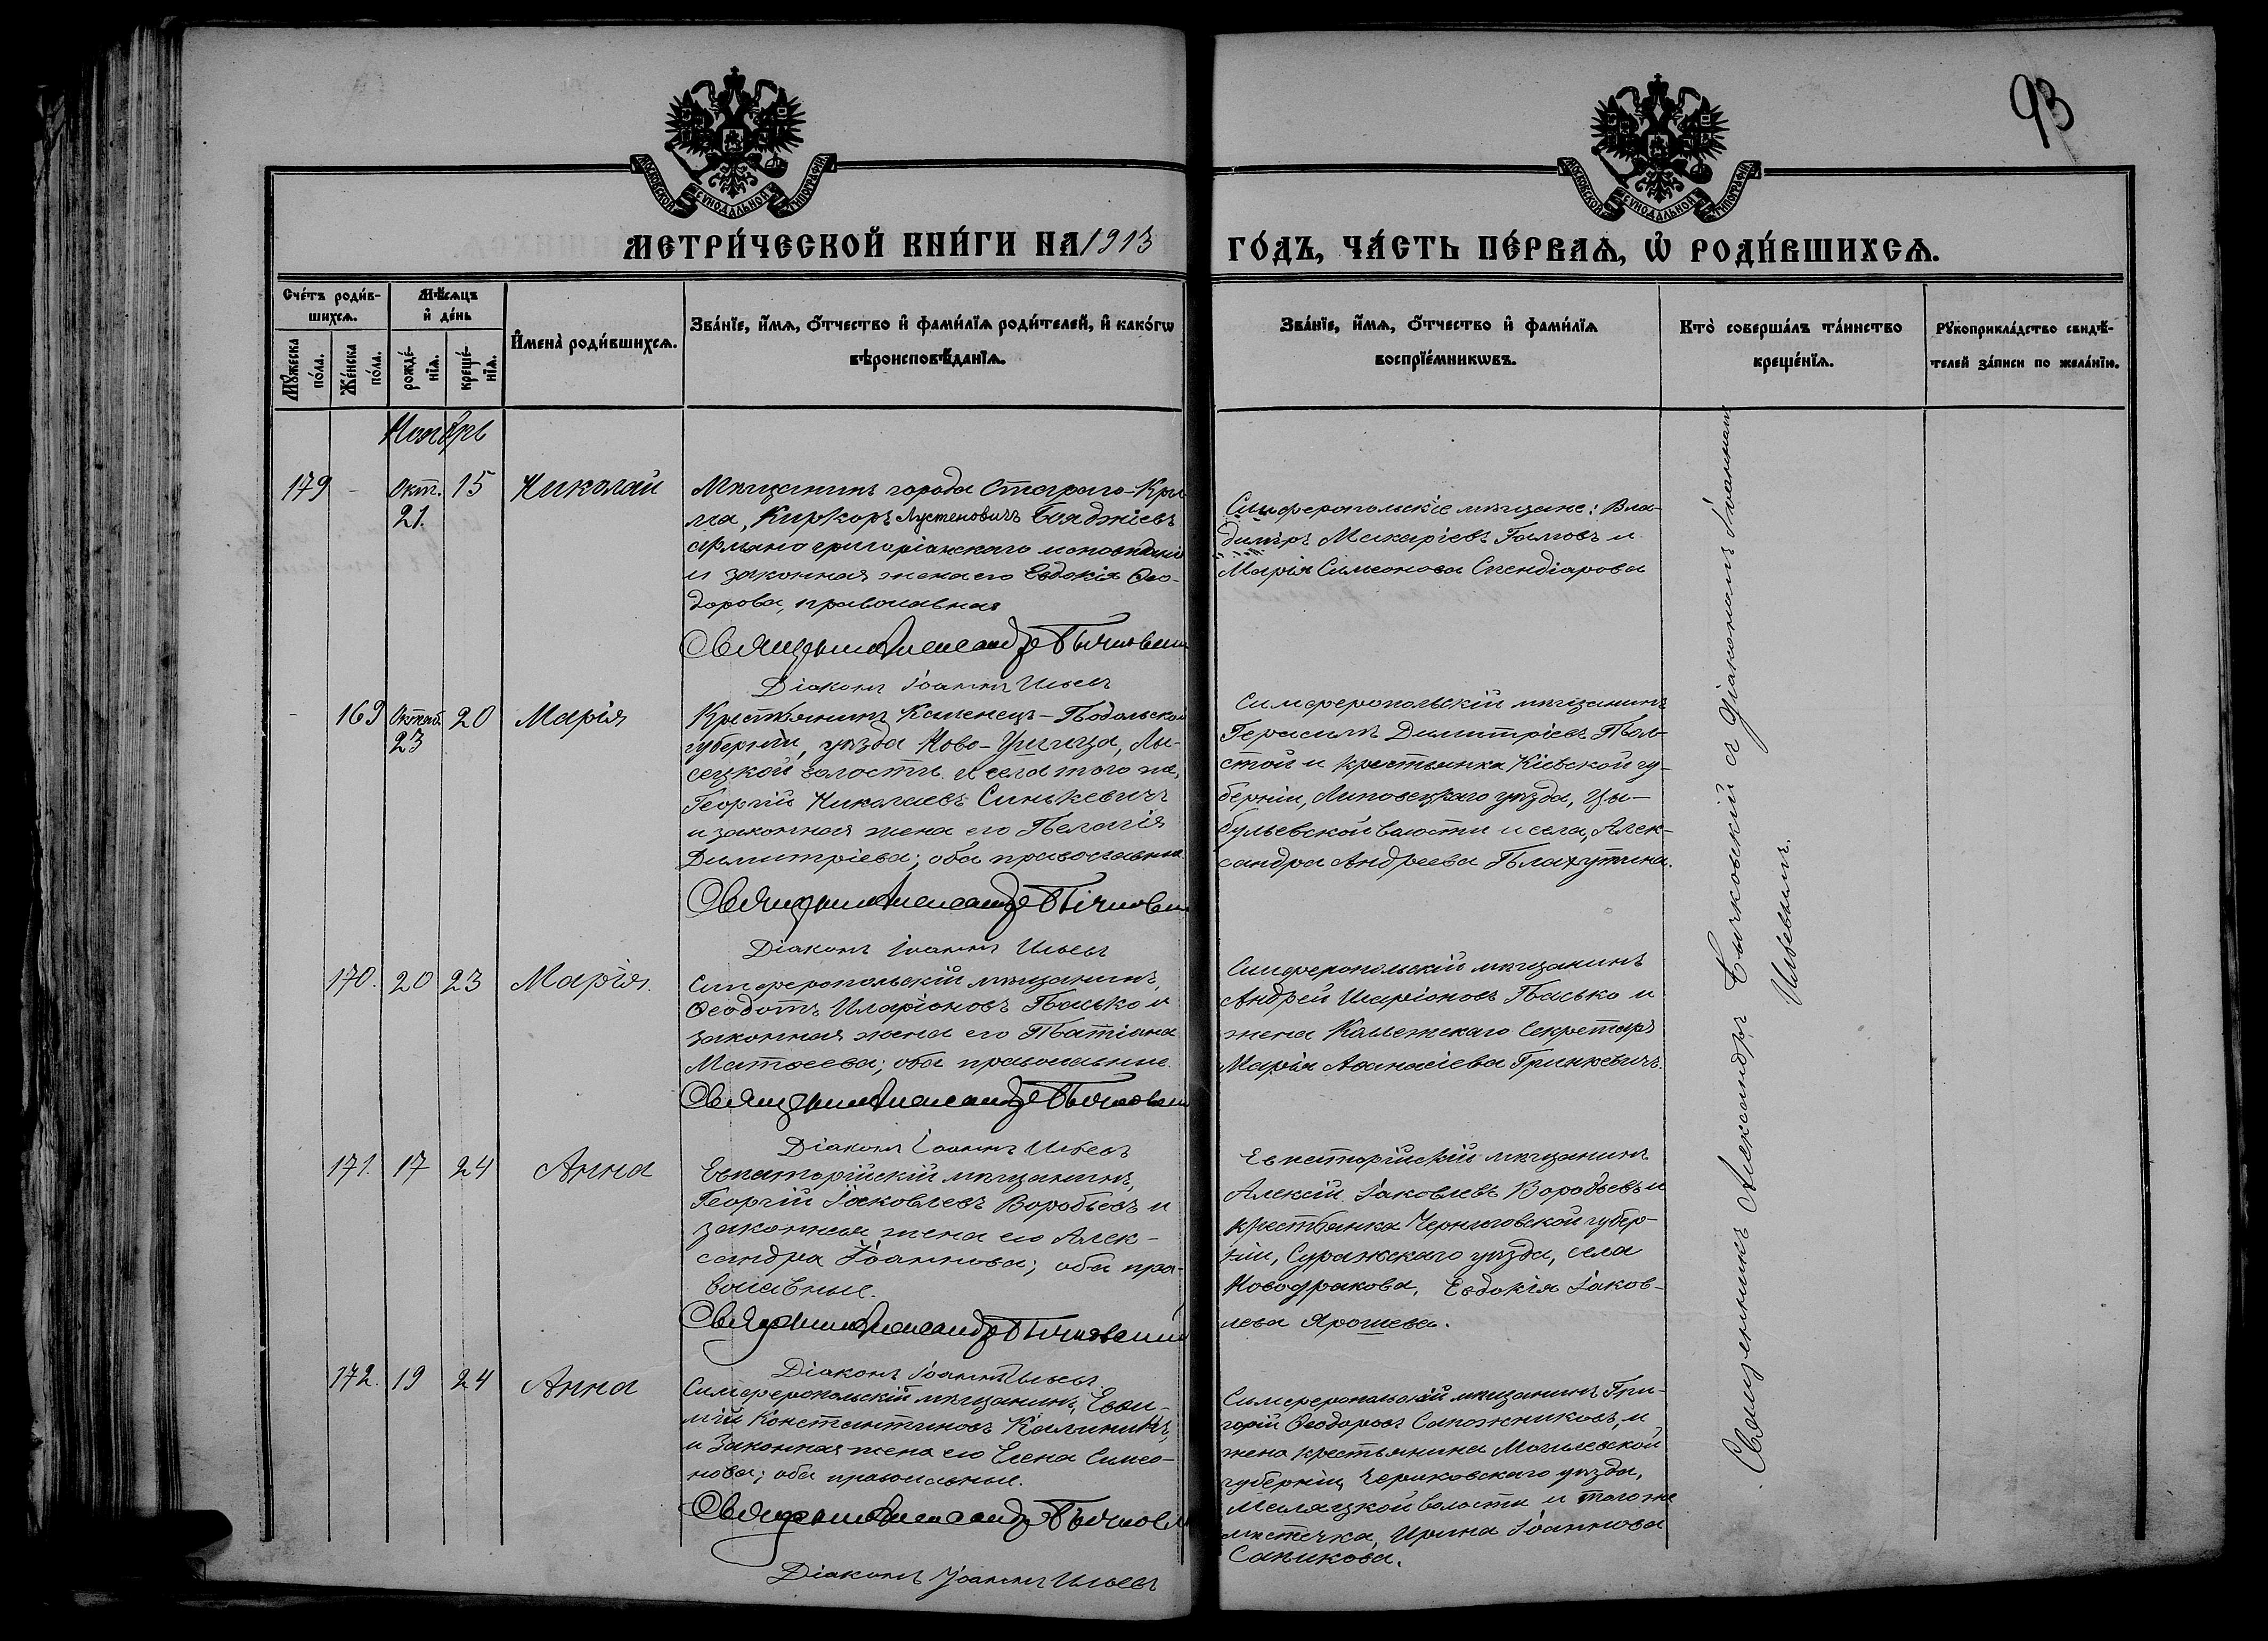 93
МОСКОВСКОЙ СѴНОДАЛЬНОЙ ТИПОГРАФІИ
МОСКОВСКОЙ СѴНОДАЛЬНОЙ ТИПОГРАФІИ
МЕТРИ́ЧЕСКОЙ КНИ́ГИ НА 1913 ГО́ДЪ, ЧА́СТЬ ПЕ́РВАѦ, Ѡ҆ РОДИ́ВШИХСѦ.
Сче́тъ роди́в-
шихсѧ.
Мꙋ́жеска по́ла.
Же́нска по́ла.
Мѣ́сѧцъ
и҆ де́нь
рожде́-
нїѧ.
креще́-
нїѧ.
И҆мена̀ роди́вшихсѧ.
Зва́нїе, и҆́мѧ, ѻ҆́тчество и҆ фами́лїѧ роди́телей, и҆ како́гѡ
вѣроисповѣ́данїѧ.
Зва́нїе, и҆́мѧ, ѻ҆́тчество и҆ фами́лїѧ
воспрїе́мникѡвъ.
Кто̀ соверша́лъ та́инство
креще́нїѧ.
Рꙋкоприкла́дство свидѣ́-
телей за́писи по жела́нїю.
Ноябрь
179
-
Окт.
21.
15
Николай
Мѣщанинъ города Стараго-Кры-
ма, Киркоръ Лустеновичъ Бояджіевъ
армяно григоріанскаго исповѣданія
и законная жена его Евдокія Ѳео-
дорова, православная
Священникъ Александръ Бычковскій
Діаконъ Іоаннъ Ильевъ
Симферопольскіе мѣщане: Вла-
диміръ Макаріевъ Гамовъ и
Марія Симеонова Спендіарова
-
169
Октяб.
23
20
Марія
Крестьянинъ Каменецъ-Подольской
губерніи, уѣзда Ново-Ушица, Лы-
сецкой волости и села того же,
Георгій Николаевъ Синькевичъ
и законная жена его Пелагія
Димитріева; оба православные
Священникъ Александръ Бычковскій
Діаконъ Іоаннъ Ильевъ
Симферопольскій мѣщанинъ
Герасимъ Димитріевъ Тол-
стой и крестьянка Кіевской гу-
берніи, Липовецкаго уѣзда, Цы-
бульевской волости и села, Алек-
сандра Андреева Плахутина.
170.
20
23
Марія.
Симферопольскій мѣщанинъ,
Ѳеодотъ Иларіоновъ Пасько и
законная жена его Татіана
Матѳеева; оба православные.
Священникъ Александръ Бычковскій
Діаконъ Іоаннъ Ильевъ
Симферопольскій мѣщанинъ
Андрей Иларіоновъ Пасько и
жена Коллежскаго Секретаря
Марія Аѳанасіева Гринкевичъ.
171.
17
24
Анна
Евпаторійскій мѣщанинъ,
Георгій Іаковлевъ Воробьевъ и
законная жена его Алек-
сандра Іоаннова; оба пра-
вославные.
Священникъ Александръ Бычковскій
Діаконъ Іоаннъ Ильевъ
Евпаторійскій мѣщанинъ
Алексій Іаковлевъ Воробьевъ и
крестьянка Черниговской губер-
ніи, Суражскаго уѣзда, села
Новодракова, Евдокія Іаков-
лева Ярошева.
172.
19
24
Анна
Симферопольскій мѣщанинъ, Евѳи-
мій Константиновъ Калининъ,
и законная жена его Елена Симео-
нова; оба православные.
Священникъ Александръ Бычковскій
Діаконъ Іоаннъ Ильевъ
Симферопольскій мѣщанинъ Гри-
горій Ѳеодоровъ Сапожниковъ, и
жена крестьянина Могилевской
губерніи, Чериковскаго уѣзда,
волости и того же
мѣстечка, Ирина Іоаннова
Сапикова.
Священникъ Александръ Бычковскій съ діакономъ Іоанномъ
Ильевымъ.